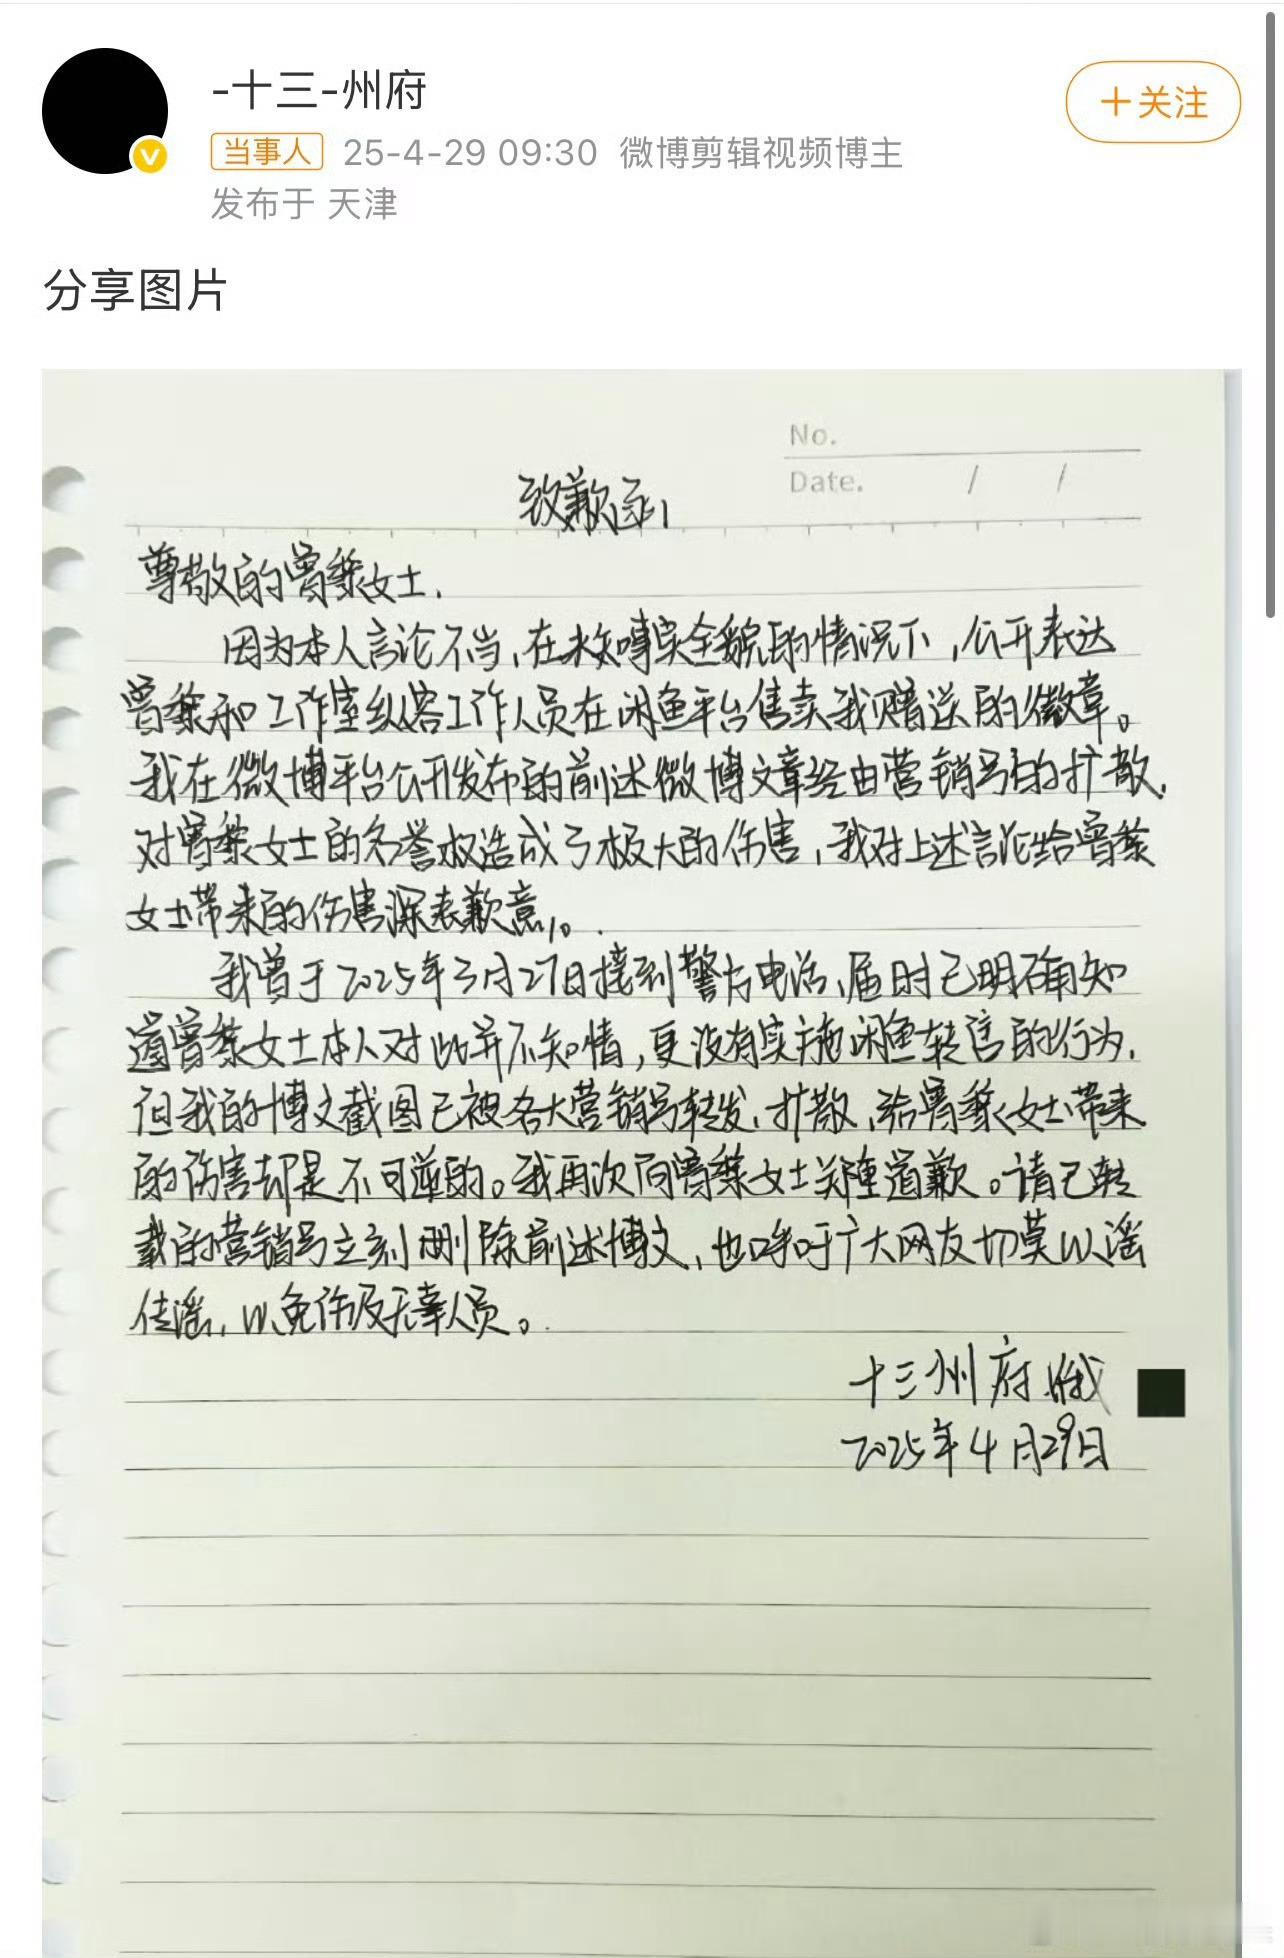 -十三-州府
+关注
当事人 25-4-29 09:30 微博剪辑视频博主
发布于 天津
分享图片
No.
Date. / /
致歉函
尊敬的曾黎女士,
因为本人言论不当,在未知事实全貌的情况下,公开表达
曾黎和工作室纵容工作人员在闲鱼平台售卖我赠送的徽章。
我在微博平台公开发布的前述微博文章经由营销号的扩散,
对曾黎女士的名誉权造成了极大的伤害,我对上述言论给曾黎
女士带来的伤害深表歉意。
我曾于2025年3月27日接到警方电话,届时已明确知
道曾黎女士本人对此并不知情,更没有实施闲鱼转售的行为,
但我的博文截图已被各大营销号转发,扩散,给曾黎女士带来
的伤害却是不可逆的。我再次向曾黎女士郑重道歉。请已转
载的营销号立刻删除前述博文,也呼吁广大网友切莫以谣
传谣,以免伤及无辜人员。
十三州府
2025年4月29日